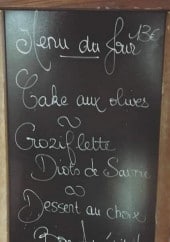 Menu du Jour 13€
Cake aux olives
Croziflette
Diots de Savoie
Dessert au choix